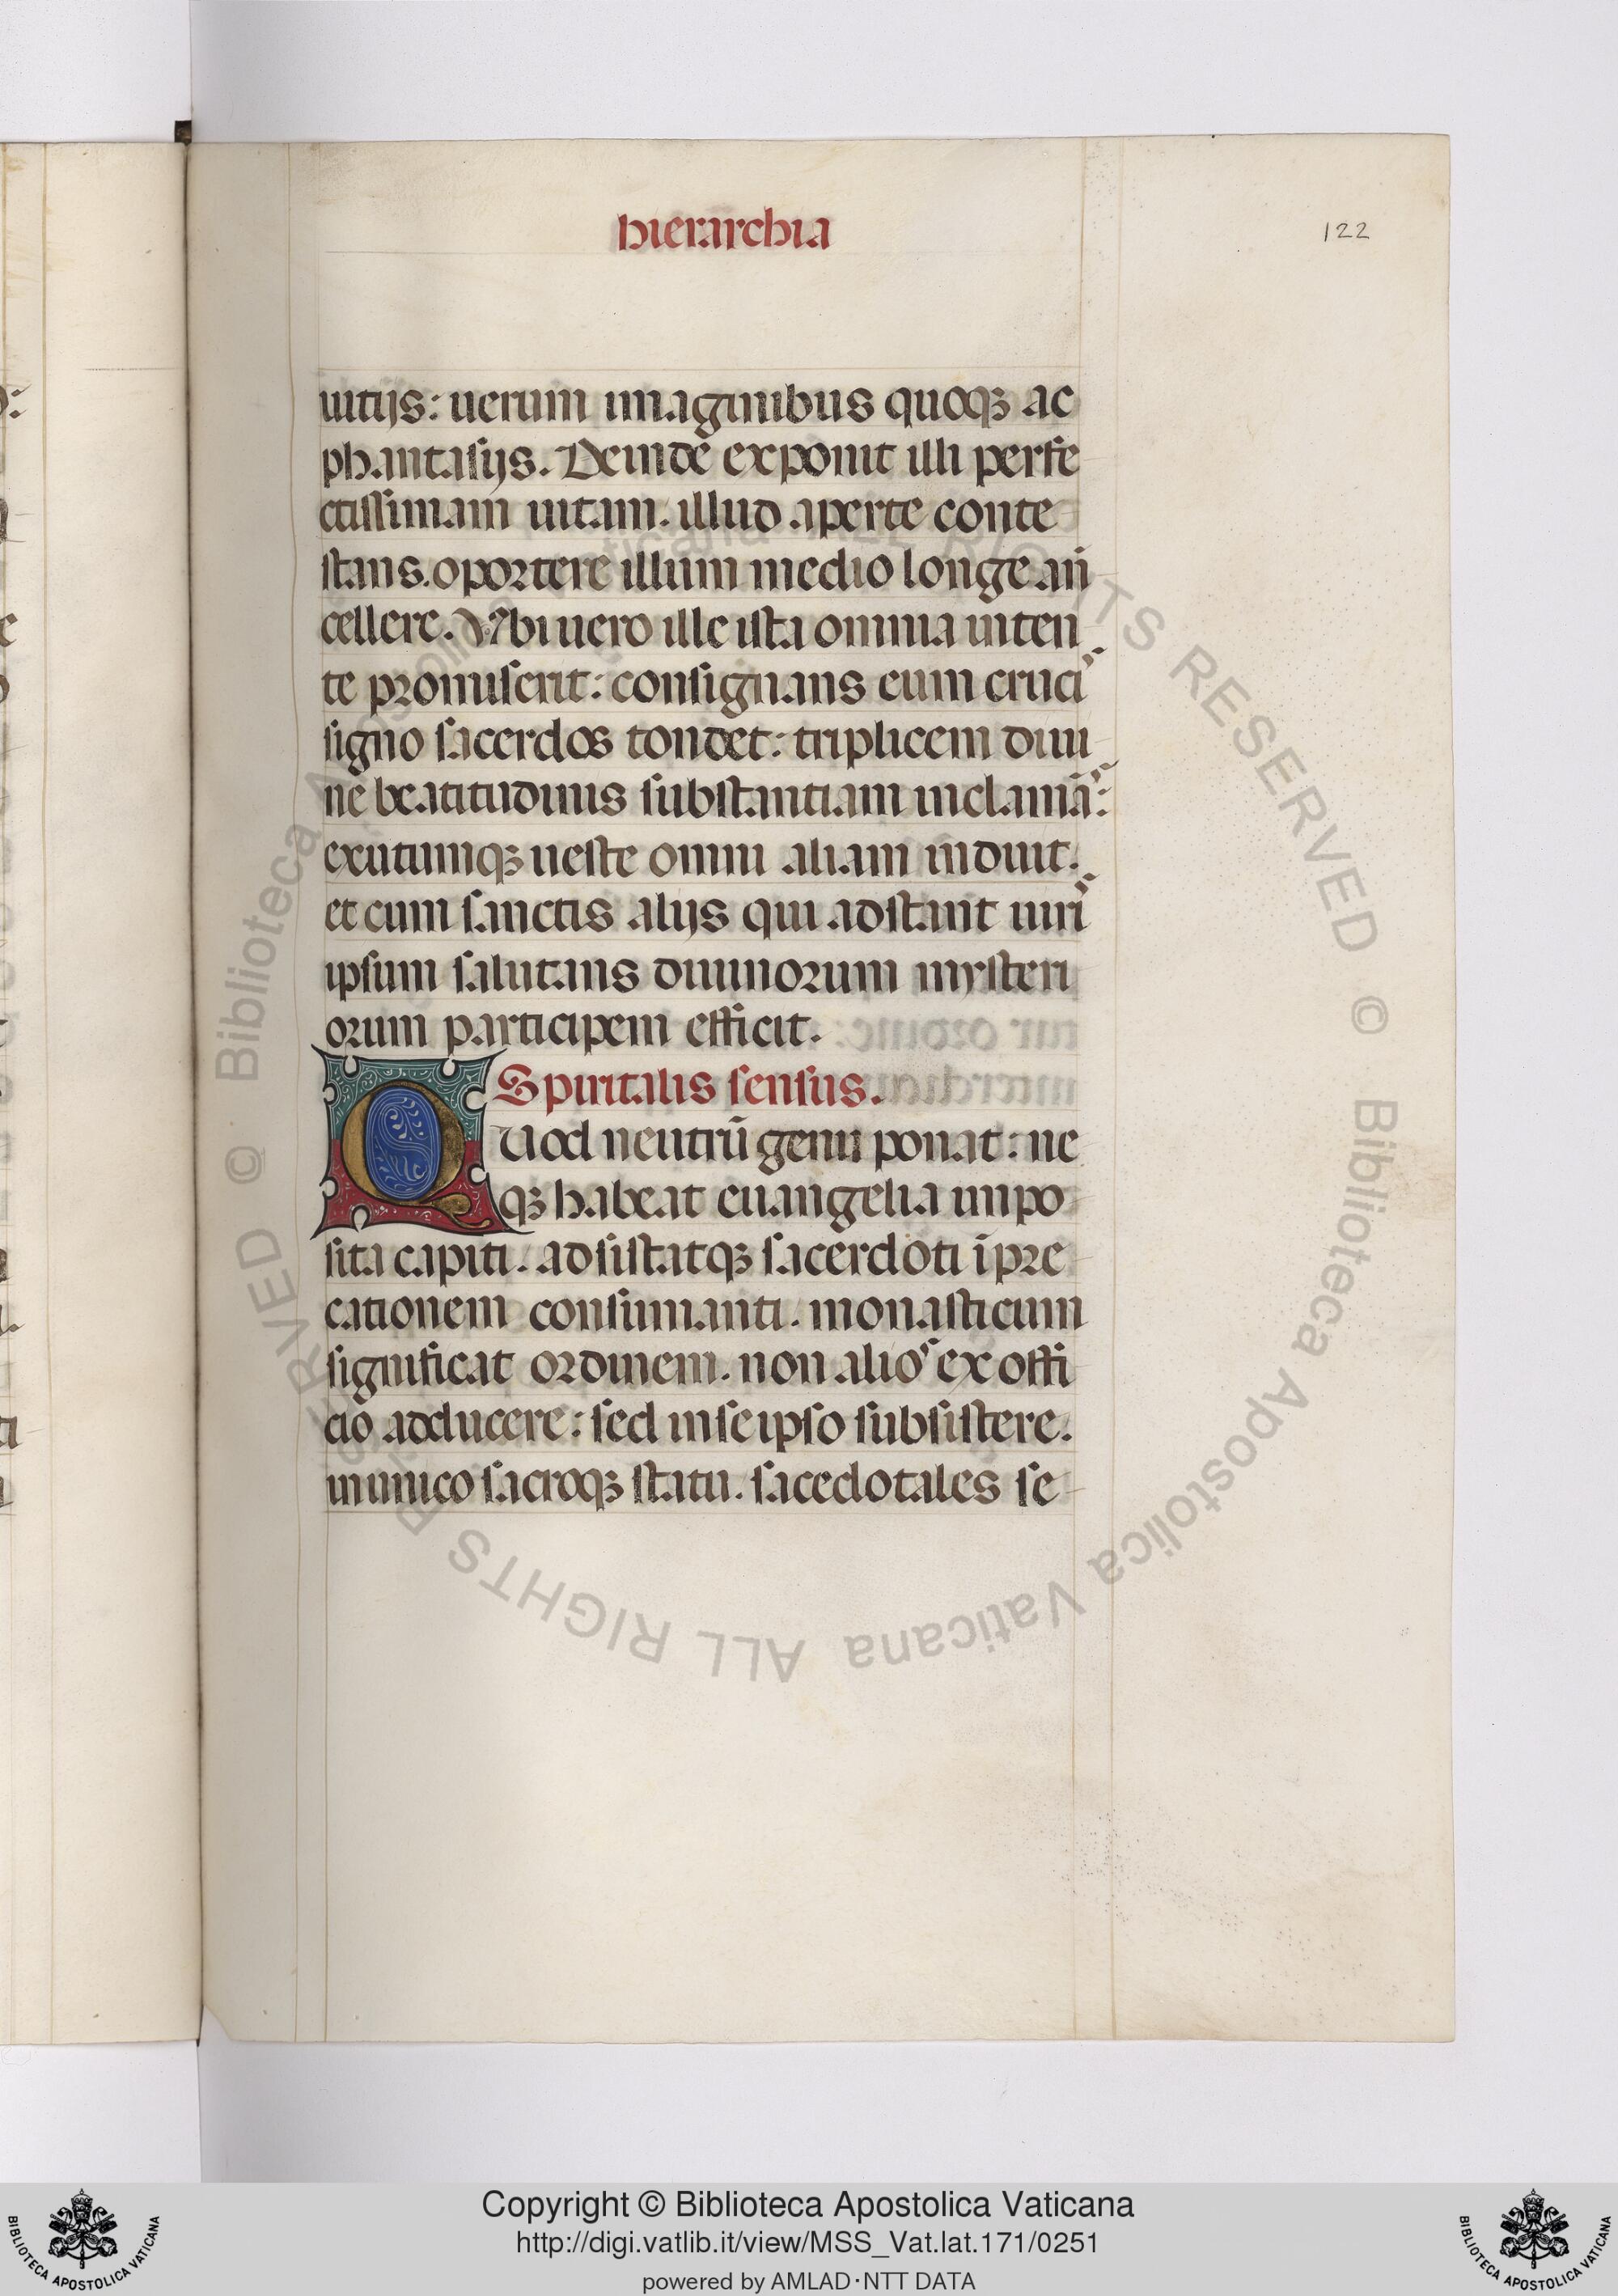 hierarchia
122
uitijs: uerum imaginibus quoqꝫ ac
phantasijs. Deinde exponit illi perfe
ctissimam uitam. illud aperte conte
stans. oportere illum medio longe an
cellere. Vbi uero ille ista omnia inten
te promiserit: consignans eum cruci
signo sacerdos tondet: triplicem diui
ne beatitudinis substantiam inclamā:
exutumqꝫ ueste omni aliam induit.
et cum sanctis alijs qui adstant uiri
ipsum salutans diuinorum mysteri
orum participem efficit.
Spiritalis sensus.
QUod neutrū genu ponat: ne
qꝫ habeat euangelia impo
sita capiti. adsistatqꝫ sacerdoti īpre
cationem consumanti. monasticum
significat ordinem. non alios ex offi
cio adducere: sed in se ipso subsistere.
in unico sacroqꝫ statu. sacedotales se
© Biblioteca Apostolica Vaticana ALL RIGHTS RESERVED
© Biblioteca Apostolica Vaticana ALL RIGHTS RESERVED
Copyright © Biblioteca Apostolica Vaticana
http://digi.vatlib.it/view/MSS_Vat.lat.171/0251
powered by AMLAD·NTT DATA
BIBLIOTECA APOSTOLICA VATICANA
BIBLIOTECA APOSTOLICA VATICANA